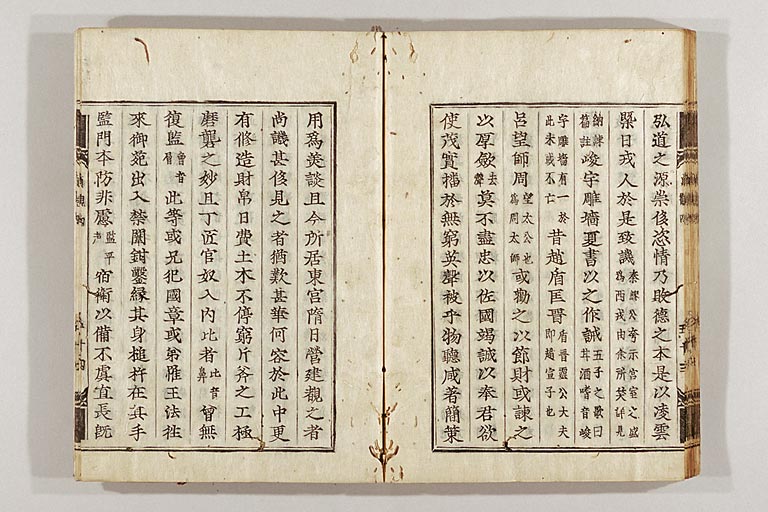 弘道之源崇侈恣情乃敗德之本是以凌雲
槩日戎人於是致譏秦繆公夸示宮室之盛爲西戎由余所笑詳見
納諫舊註峻宇雕墻夏書以之作誡五子之歌曰甘酒嗜音峻
宇雕墻有一於此未或不亡昔趙盾匡晉盾晉靈公大夫即趙宣子也
呂望師周望太公也爲周太師或勸之以節財或諫之
以厚斂去聲莫不盡忠以佐國竭誠以奉君欲
使茂實播於無窮英聲被乎物聽咸著簡策
用爲美談且今所居東宮隋日營建覩之者
尚譏甚侈見之者猶歎甚華何容於此中更
有修造財帛日費土木不停窮斤斧之工極
磨礱之妙且丁匠官奴入內比者比音鼻曾無
復監此等或兄犯國章或弟罹王法徃
來御苑出入禁闈鉗鑿緣其身槌杵在其手
監門本防非慮監平聲宿衛以備不虞直長旣